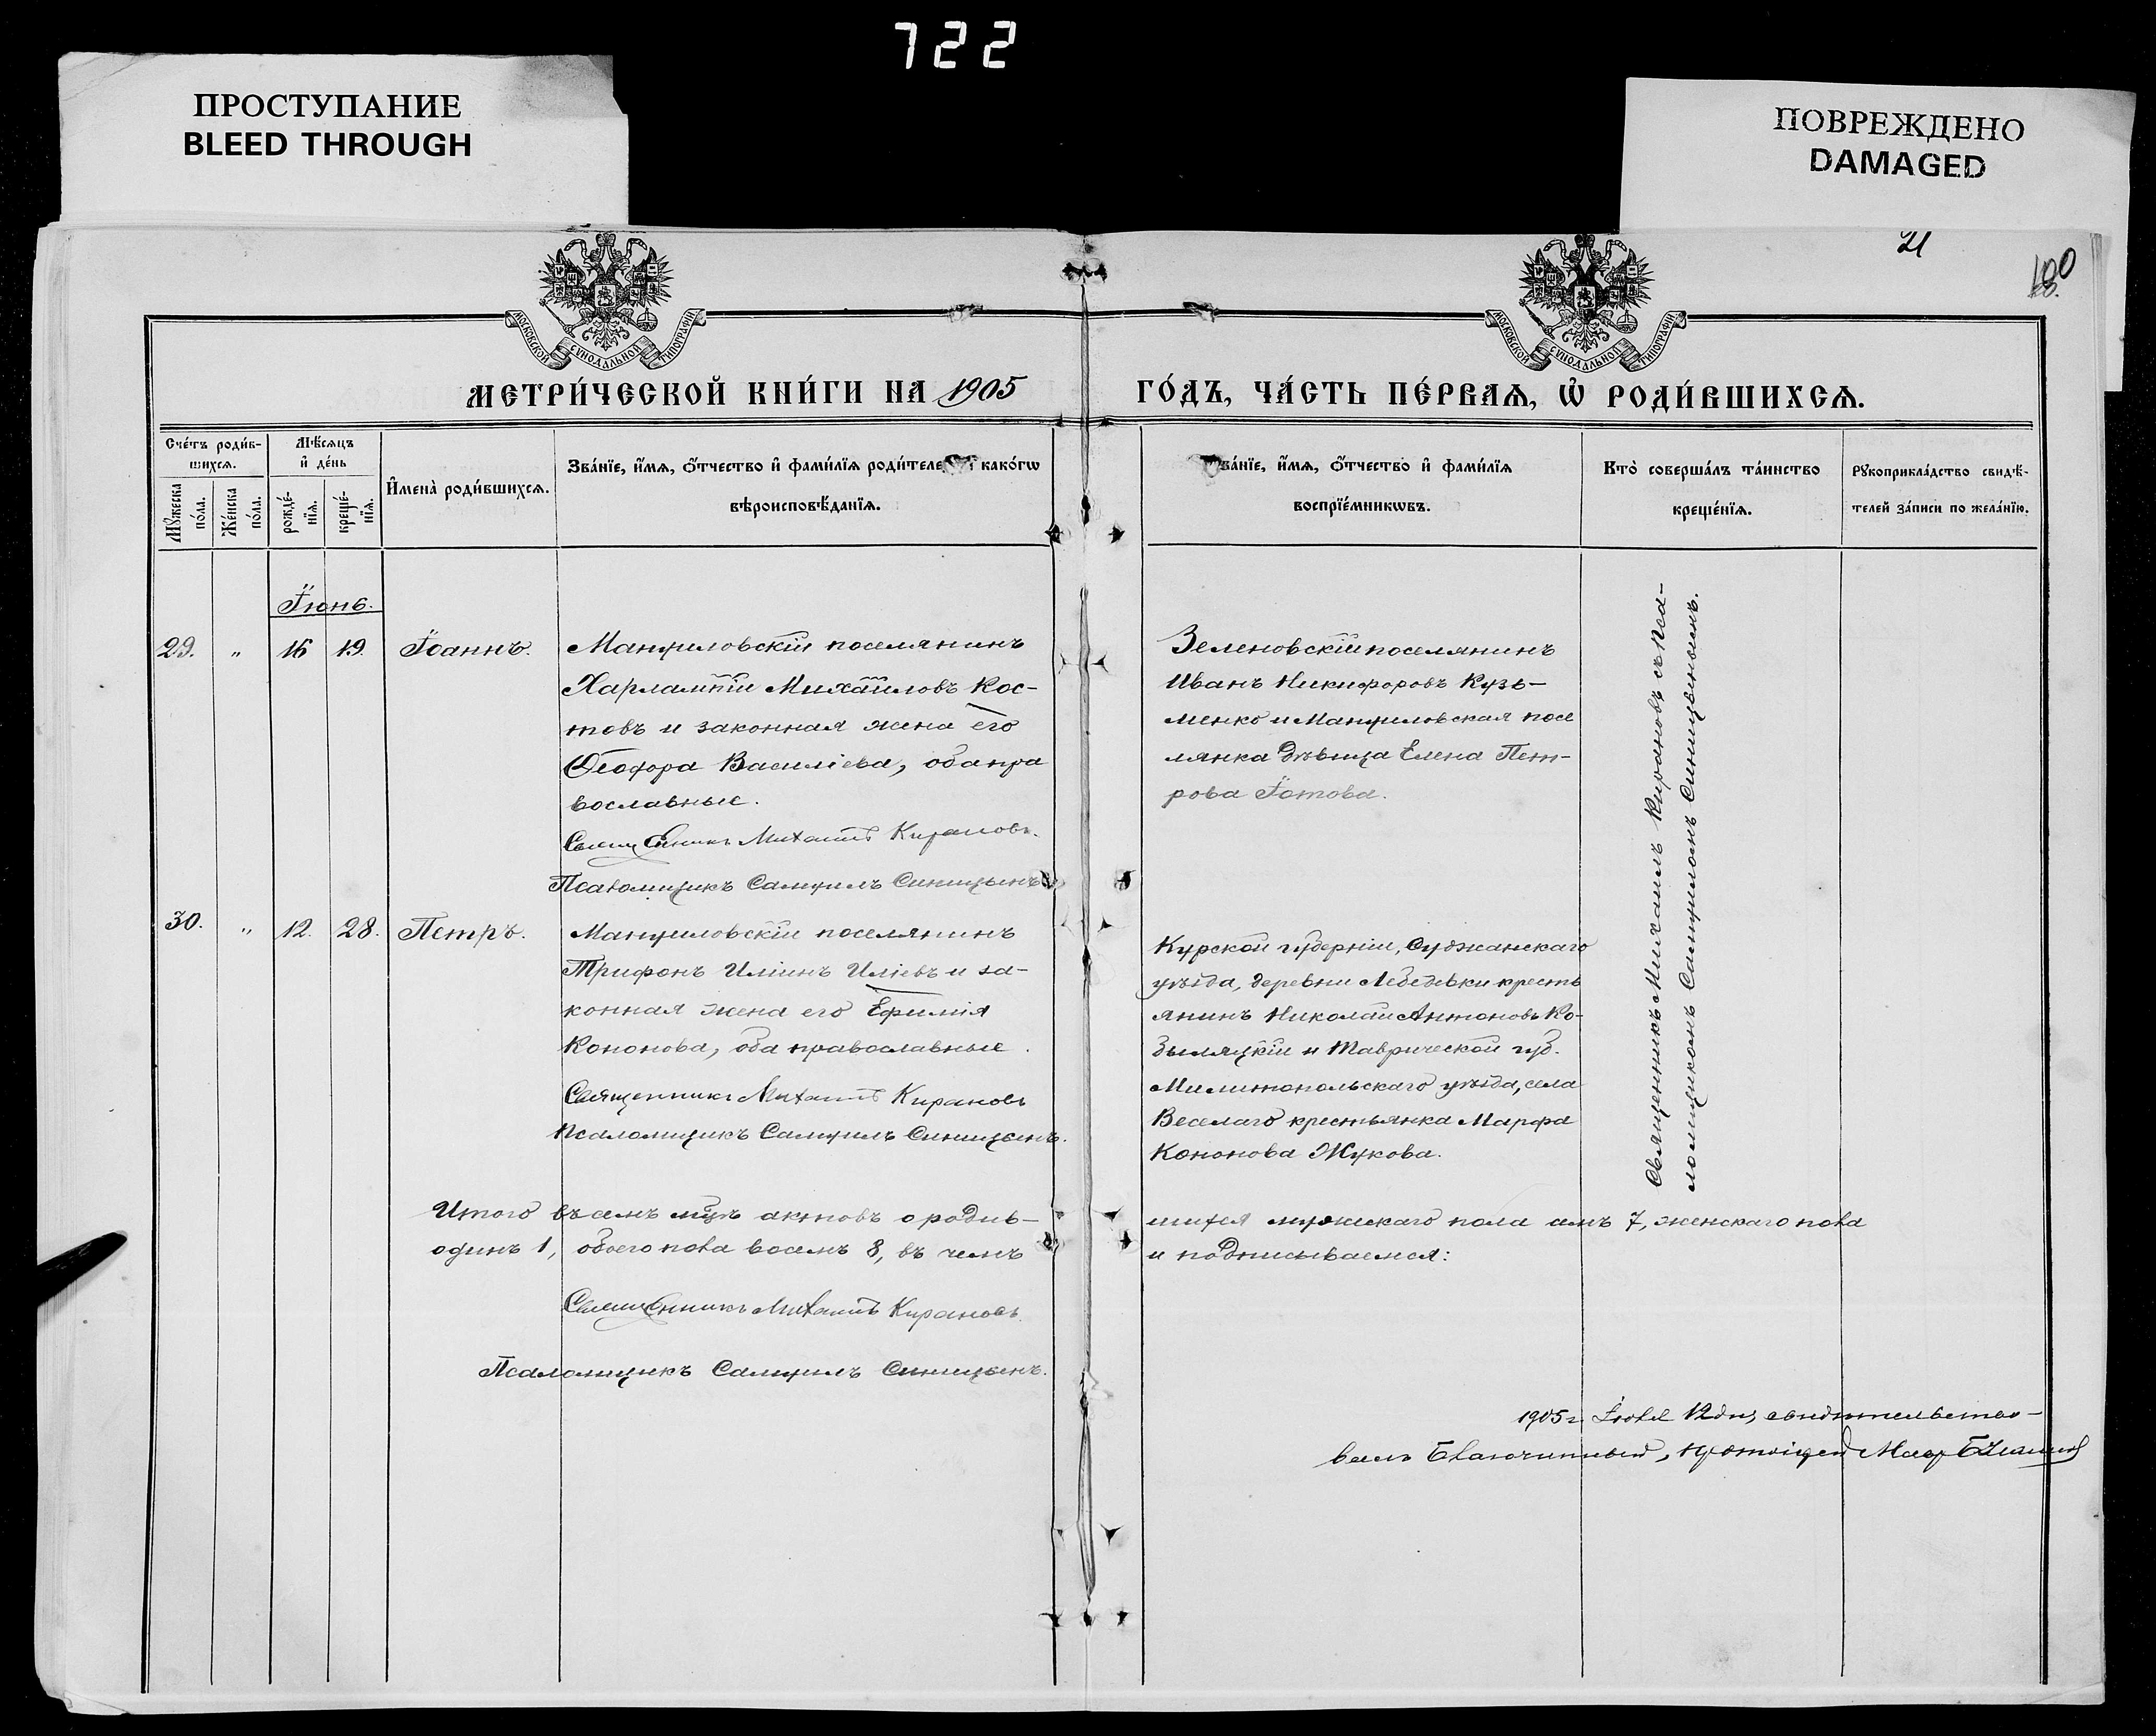 722
ПРОСТУПАНИЕ
BLEED THROUGH
ПОВРЕЖДЕНО
DAMAGED
21
МОСКОВСКОЙ СѴНОДАЛЬНОЙ ТИПОГРАФІИ
МОСКОВСКОЙ СѴНОДАЛЬНОЙ ТИПОГРАФІИ
МЕТРИ́ЧЕСКОЙ КНИ́ГИ НА 1905
ГО́ДЪ, ЧА́СТЬ ПЕ́РВАѦ, Ѡ҆ РОДИ́ВШИХСѦ.
Сче́тъ роди́в-
шихсѧ.
Мѣ́сѧцъ
и҆ де́нь
Мꙋ́жеска
по́ла.
Же́нска
по́ла.
рожде́-
нїѧ.
креще́-
нїѧ.
И҆мена̀ роди́вшихсѧ.
Зва́нїе, и҆́мѧ, ѻ҆́тчество и҆ фами́лїѧ роди́теле како́гѡ
вѣроисповѣ́данїѧ.
ва́нїе, и҆́мѧ, ѻ҆́тчество и҆ фами́лїѧ
воспрїе́мникѡвъ.
Кто̀ соверша́лъ та́инство
креще́нїѧ.
Рꙋкоприкла́дство свидѣ́-
телей за́писи по жела́нїю.
Іюнь.
29. " 16 19. Іоаннъ.
Мануиловскій поселянинъ
Харлампій Михайловъ Кос-
товъ и законная жена его
Ѳеодора Василіева, оба пра
вославные.
Священникъ Михаилъ Кирановъ.
Псаломщикъ Самуилъ Синицынъ
Зеленовскій поселянинъ
Иванъ Никифоровъ Кузь-
менко и Мануиловская посе
лянка дѣвица Елена Пет-
рова Іотова.
Священникъ Михаилъ Кирановъ съ Пса-
ломщикомъ Самуиломъ Синицынымъ.
30. " 12. 28. Петръ.
Мануиловскій поселянинъ
Трифонъ Иліинъ Иліевъ и за-
конная жена его Ефимія
Кононова, оба православные.
Священникъ Михаилъ Кирановъ
Псаломщикъ Самуилъ Синицынъ.
Курской губерніи, Суджанскаго
уѣзда, деревни Лебедевки кресть
янинъ Николай Антоновъ Ко-
быляцкій и Таврической губ.
Милитопольскаго уѣзда, села
Веселаго крестьянка Марфа
Кононова Жукова.
Итого въ семъ мцѣ актовъ о родив-
шихся мужскаго пола семь 7, женскаго пола
одинъ 1, обоего пола восемь 8, въ чемъ
и подписываемся:
Священникъ Михаилъ Кирановъ
Псаломщикъ Самуилъ Синицынъ.
1905 г. Іюля 12 дня, свидѣтельство-
валъ Благочинный, протоіерей